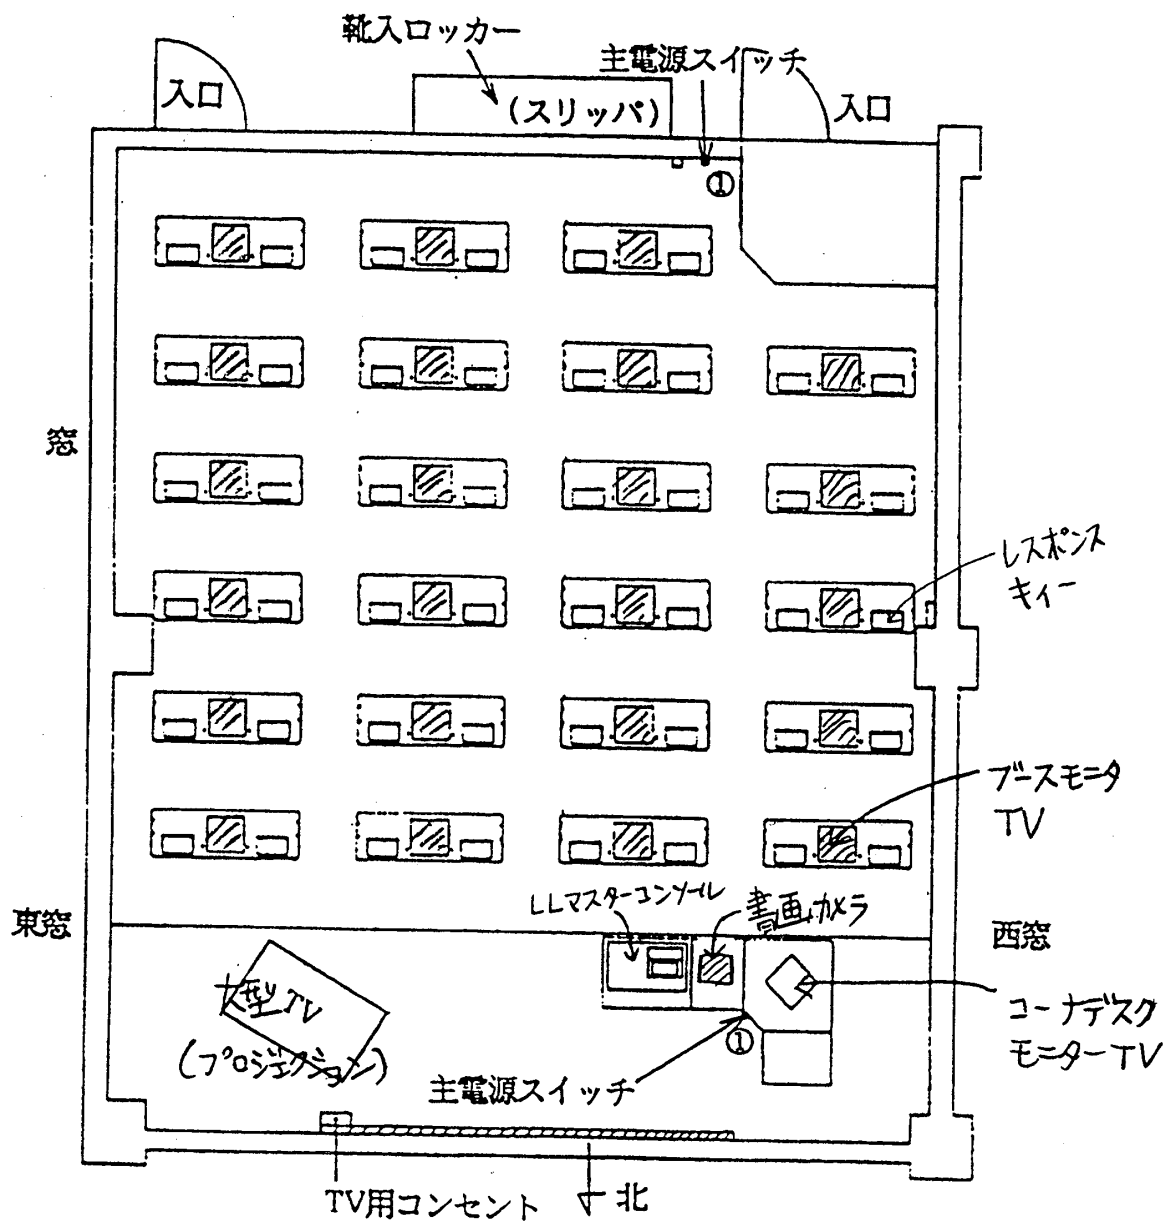 靴入ロッカー
主電源スイッチ
入口
(スリッパ)
入口
①
窓
レスポンス
キィー
ブースモニタ
TV
LLマスターコンソール
書画カメラ
東窓
西窓
大型TV
(プロジェクション)
コーナデスク
モニターTV
①
主電源スイッチ
TV用コンセント
北